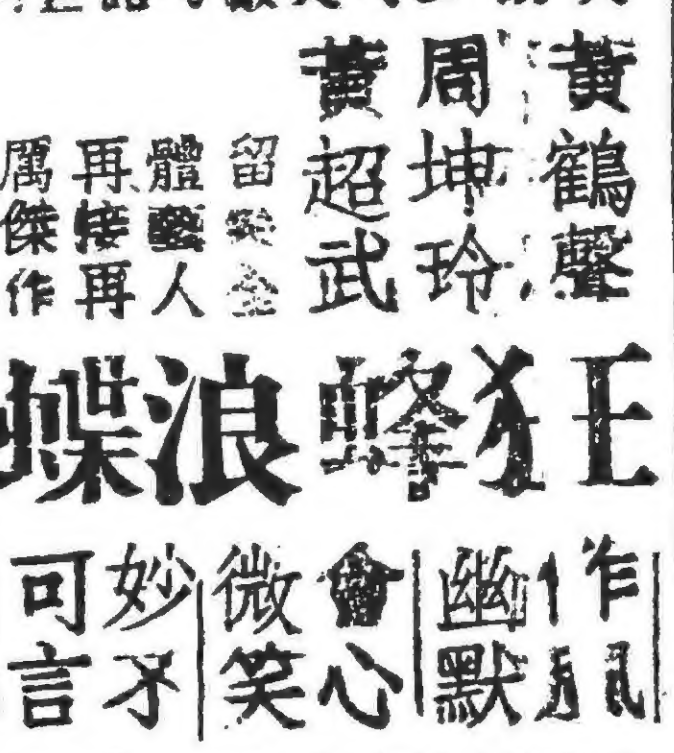 黃鶴聲
周坤玲
黃超武
留全
體藝人
再接再
厲傑作
狂蜂浪蝶
作風
幽默
會心
微笑
妙不
可言